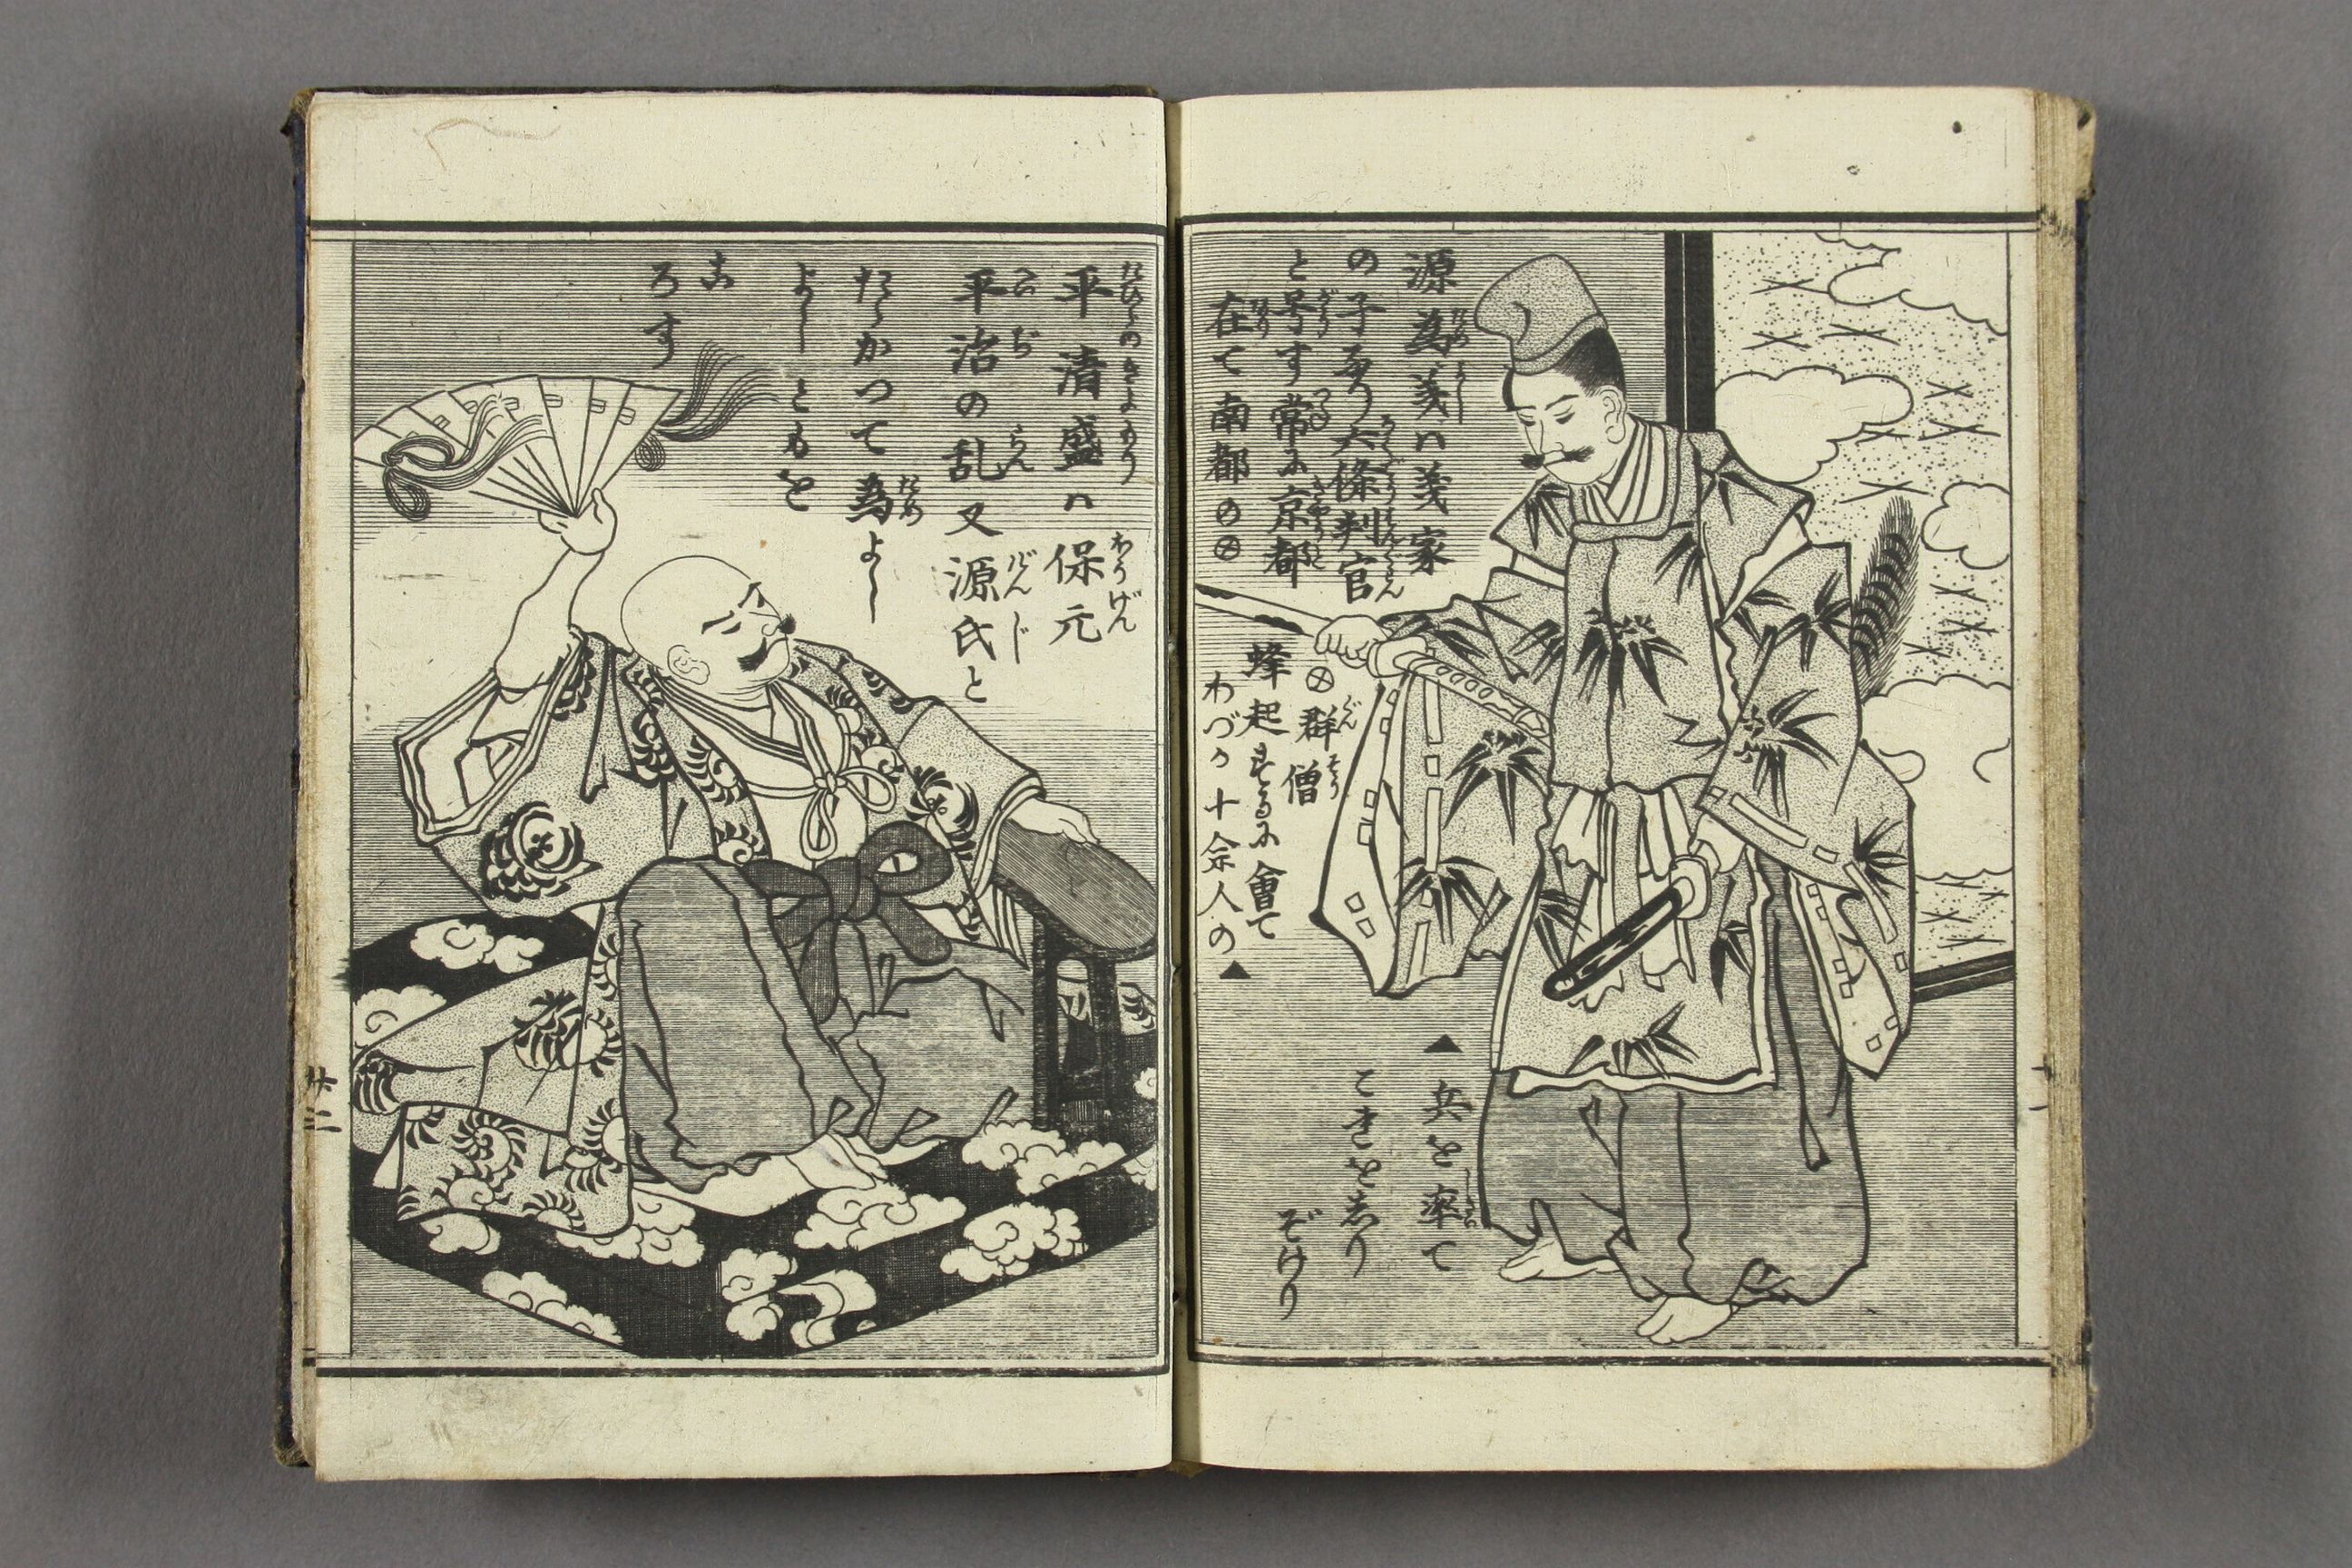 源為義ハ義家
の子なり六條判官
と号す常に京都
在て南都の⊗
⊗群僧
蜂起するに會て
わづか十余人の▲
▲兵を率て
これを志り
ぞけり
平清盛ハ保元
平治の乱又源氏と
たゝかつて為よし
よしともを
こ
ろす